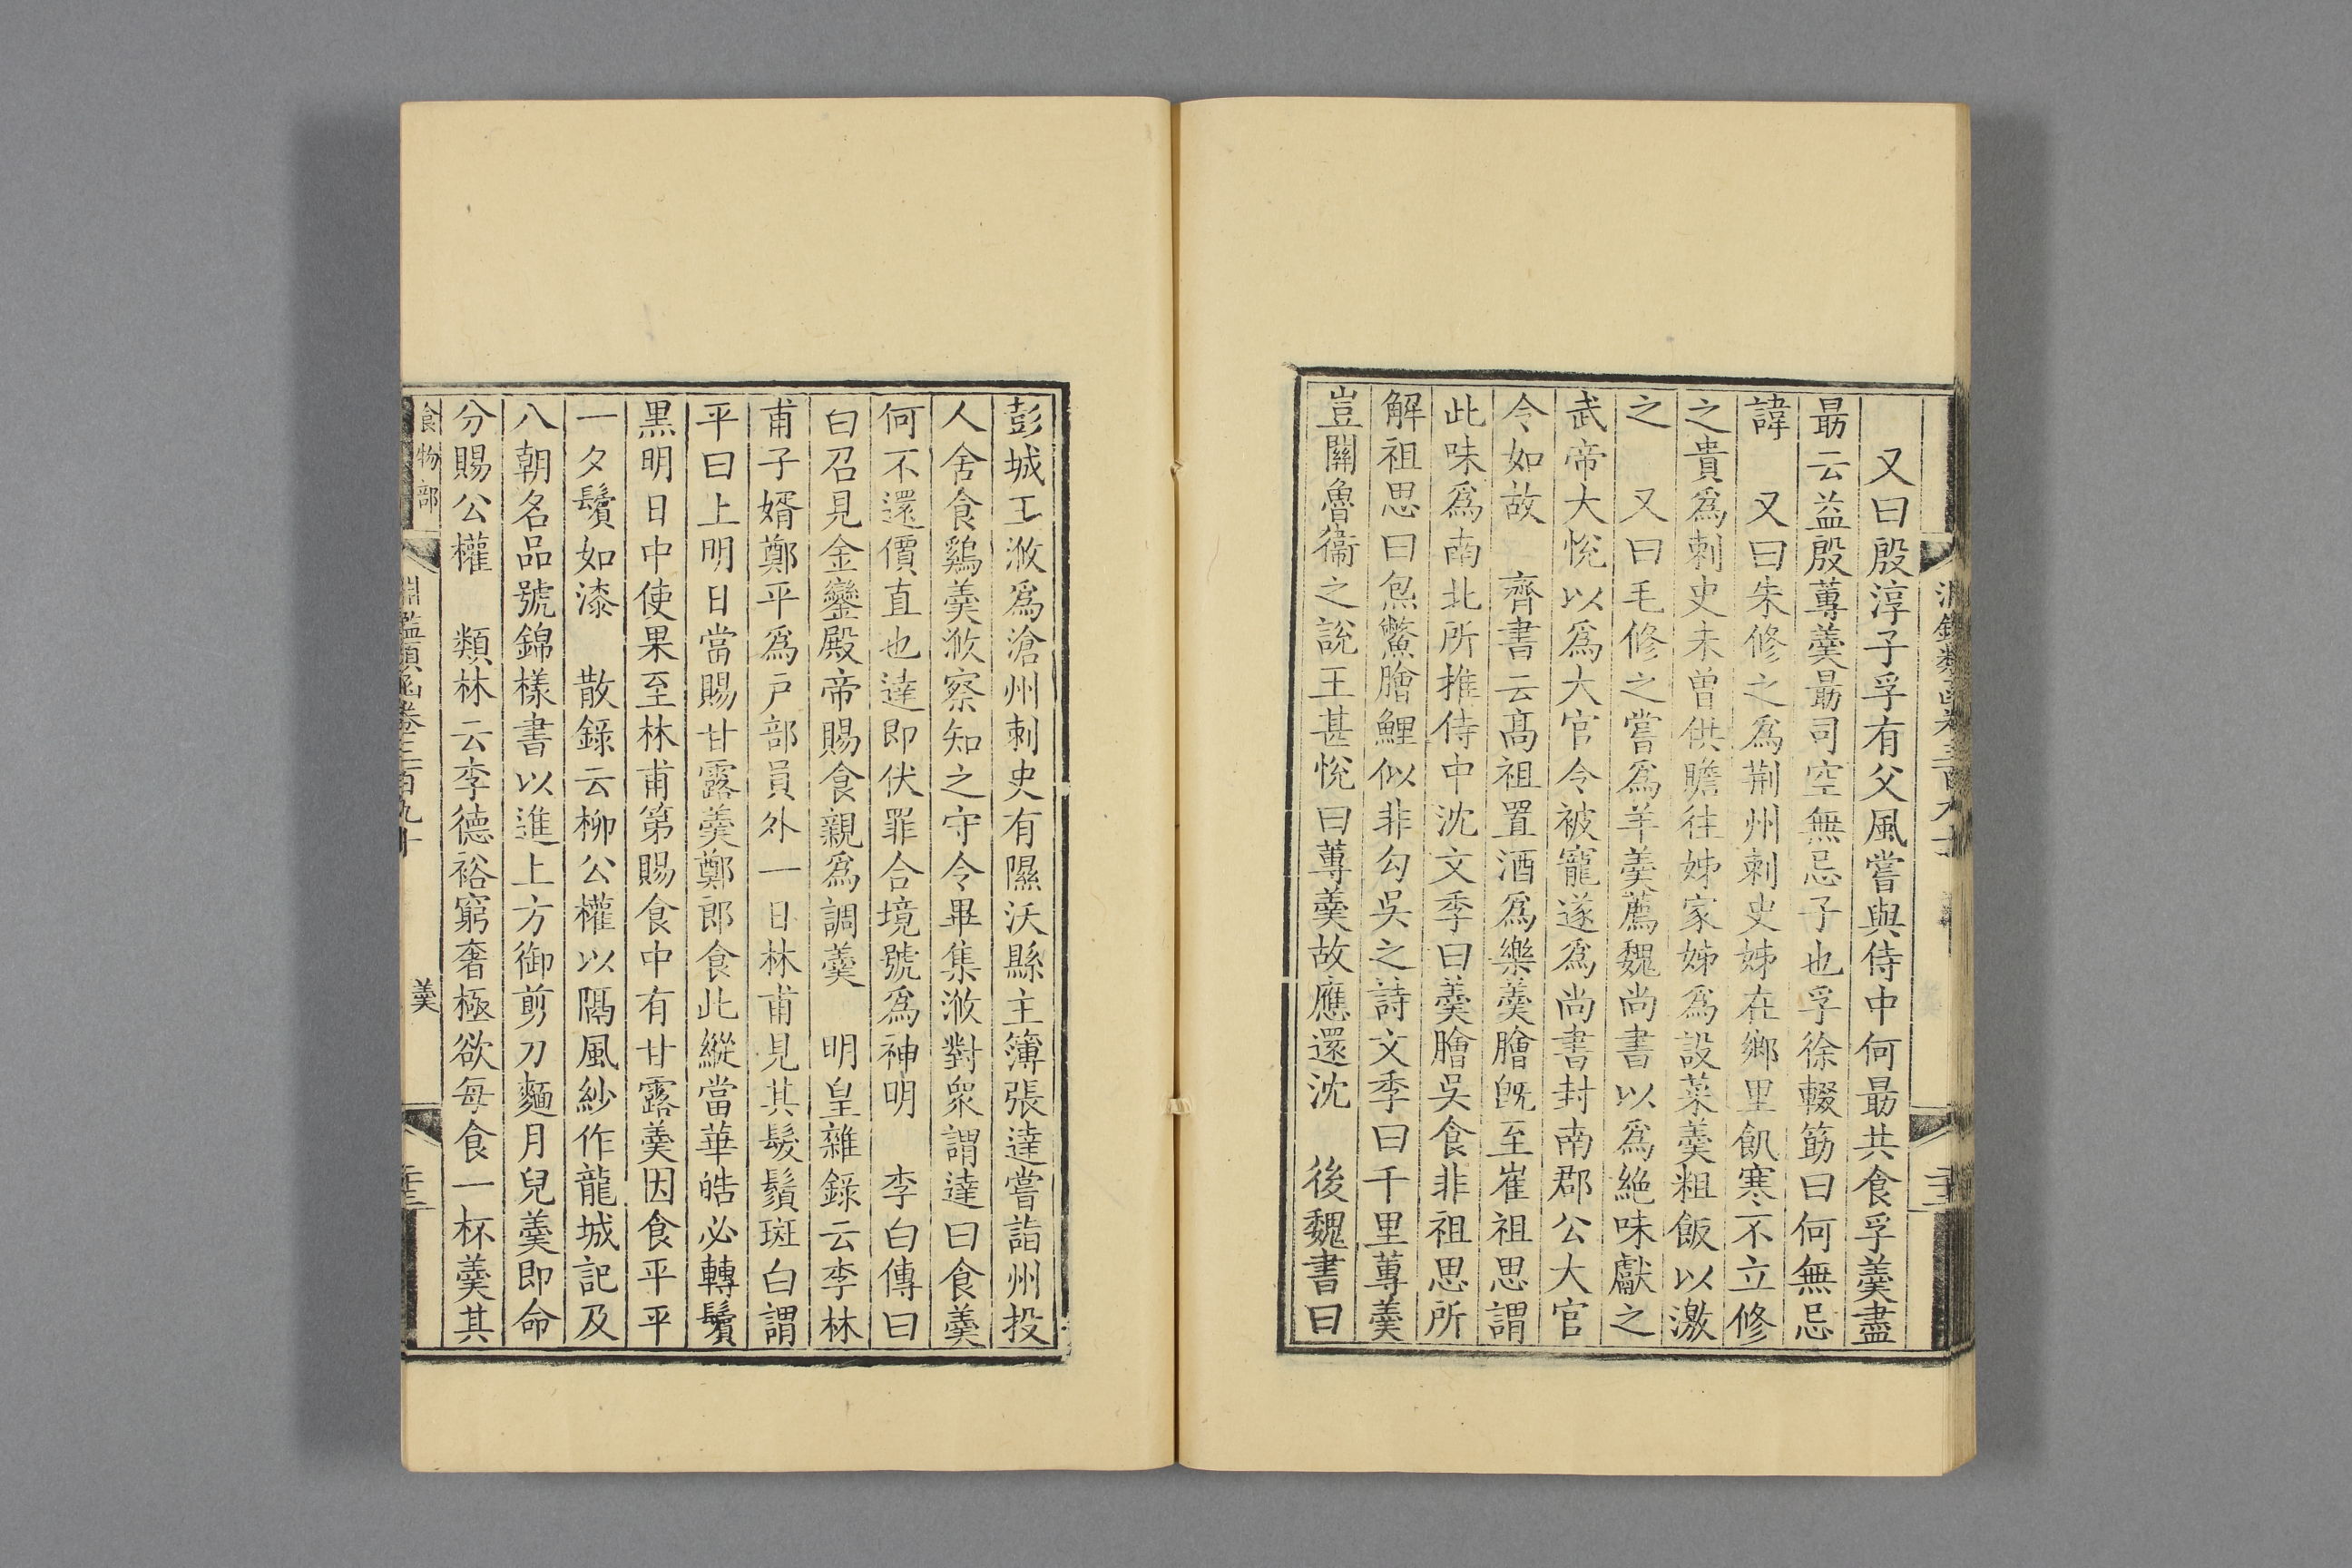 又曰殷淳子孚有父風嘗與侍中何勗共食孚羹盡
勗云益殷蓴羹勗司空無忌子也孚徐輟筯曰何無忌
諱　又曰朱修之爲荆州刺史姊在鄉里飢寒不立修
之貴爲刺史未曾供贍往姊家姊爲設菜羹粗飯以激
之　又曰毛修之嘗爲羊羹薦魏尚書以爲絶味獻之
武帝大悅以爲大官令被寵遂爲尚書封南郡公大官
令如故　齊書云髙祖置酒爲樂羹膾旣至崔祖思謂
此味爲南北所推侍中沈文季曰羹膾吳食非祖思所
解祖思曰炰鱉膾鯉似非勾吳之詩文季曰千里蓴羹
豈關魯衞之說王甚悅曰蓴羹故應還沈　後魏書曰
彭城王浟爲滄州刺史有隰沃縣主簿張達嘗詣州投
人舍食鷄羹浟察知之守令畢集浟對衆謂達曰食羹
何不還價直也達即伏罪合境號爲神明　李白傳曰
曰召見金鑾殿帝賜食親爲調羹　明皇雜錄云李林
甫子婿鄭平爲戸部員外一日林甫見其髮鬚斑白謂
平曰上明日當賜甘露羹鄭郎食此縱當華皓必轉鬢
黒明日中使果至林甫第賜食中有甘露羹因食平平
一夕鬢如漆　散錄云柳公權以隔風紗作龍城記及
八朝名品號錦樣書以進上方御剪刀麵月兒羹即命
分賜公權　類林云李德裕窮奢極欲每食一杯羹其
食物部　淵鑑類函卷三百九十　羹